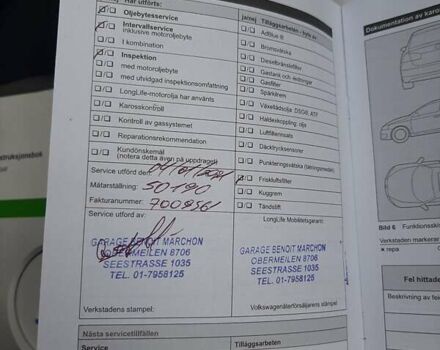 Har utförts:
ja/nej Tilläggsarbeten - info av
Oljebytesservice
Intervallservice
inklusive motoroljebyte
I kombination
Inspektion
med motoroljebyte
med utvidgad inspektionsomfattning
LongLife-motorolja har använts
Karosskontroll
Kontroll av gassystemet
Reparationsrekommendation
Kundönskemål
(notera detta även på uppdraget)
AdBlue ®
Bromsvätska
Dieselbränslefilter
Gastank och -ledningar
Gasfilter
Spärklinem
Växellådsolja: DSG®, ATF
Haldexkoppling: olja
Luftfilterinsats
Däcktryckssensorer
Punkteringsvätska (tätningsmedel)
Friskluftsfilter
Kugrem
Tändstift
Service utförd den:
Mätarställning: 50190
Fakturanummer: 7009561
Service utförd av:
LongLife Mobilitetsgaranti:
GARAGE BENOIT MARCHON
OBERMEILEN 8706
SEESTRASSE 1035
TEL. 01-7958125
GARAGE BENOIT MARCHON
OBERMEILEN 8706
SEESTRASSE 1035
TEL. 01-7958125
Verkstadens stämpel:
Volkswagenåterförsäljarens stämpel:
Nästa servicetillfällen
Service
Tilläggsarbeten
Dokumentation av karos
Bild 6 Funktionsski
Verkstaden markerar
× repa
Fel hittade
Beskrivning av fel